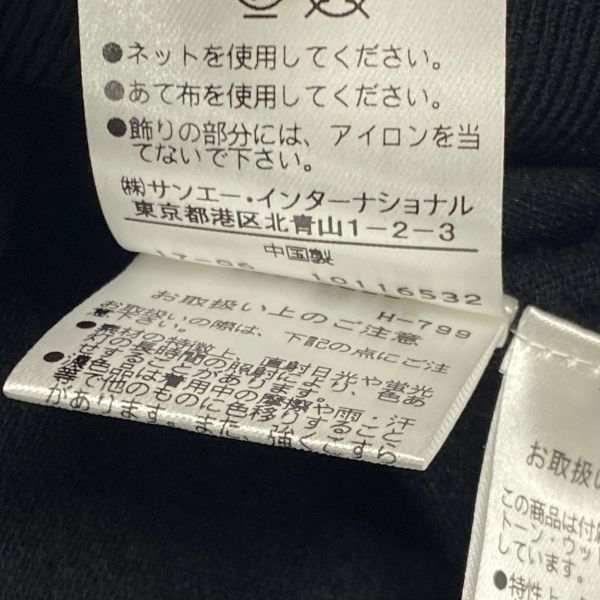 ●ネットを使用してください。
●あて布を使用してください。
●飾りの部分には、アイロンを当
てないで下さい。
(株)サンエー・インターナショナル
東京都港区北青山1-2-3
中国製
10116532
H-799
お取扱い上のご注意
お取扱いの際は、下記の点にご注
意下さい。
●素材の特徴上、直射日光や蛍光
灯の長時間の照射により、色あ
せすることがあります。
●濃色品は着用中の摩擦や雨・汗
等で他のものに色移りすること
があります。また、強くこすら
お取扱い
この商品は付属
トーン・ウッ
しています。
●特性上、